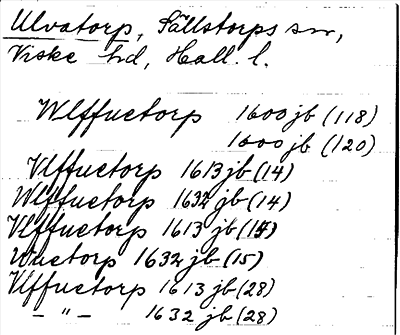 Ulvatorp, Sällstorps sn,
Viske hd, Hall. l.
Wlffuetorp 1600 jb (118)
1600 jb (120)
Vlffuetorp 1613 jb (14)
Wlffuetorp 1632 jb (14)
Vlffuetorp 1613 jb (15)
Wuetorp 1632 jb (15)
Vlffuetorp 1613 jb (28)
— " — 1632 jb (28)